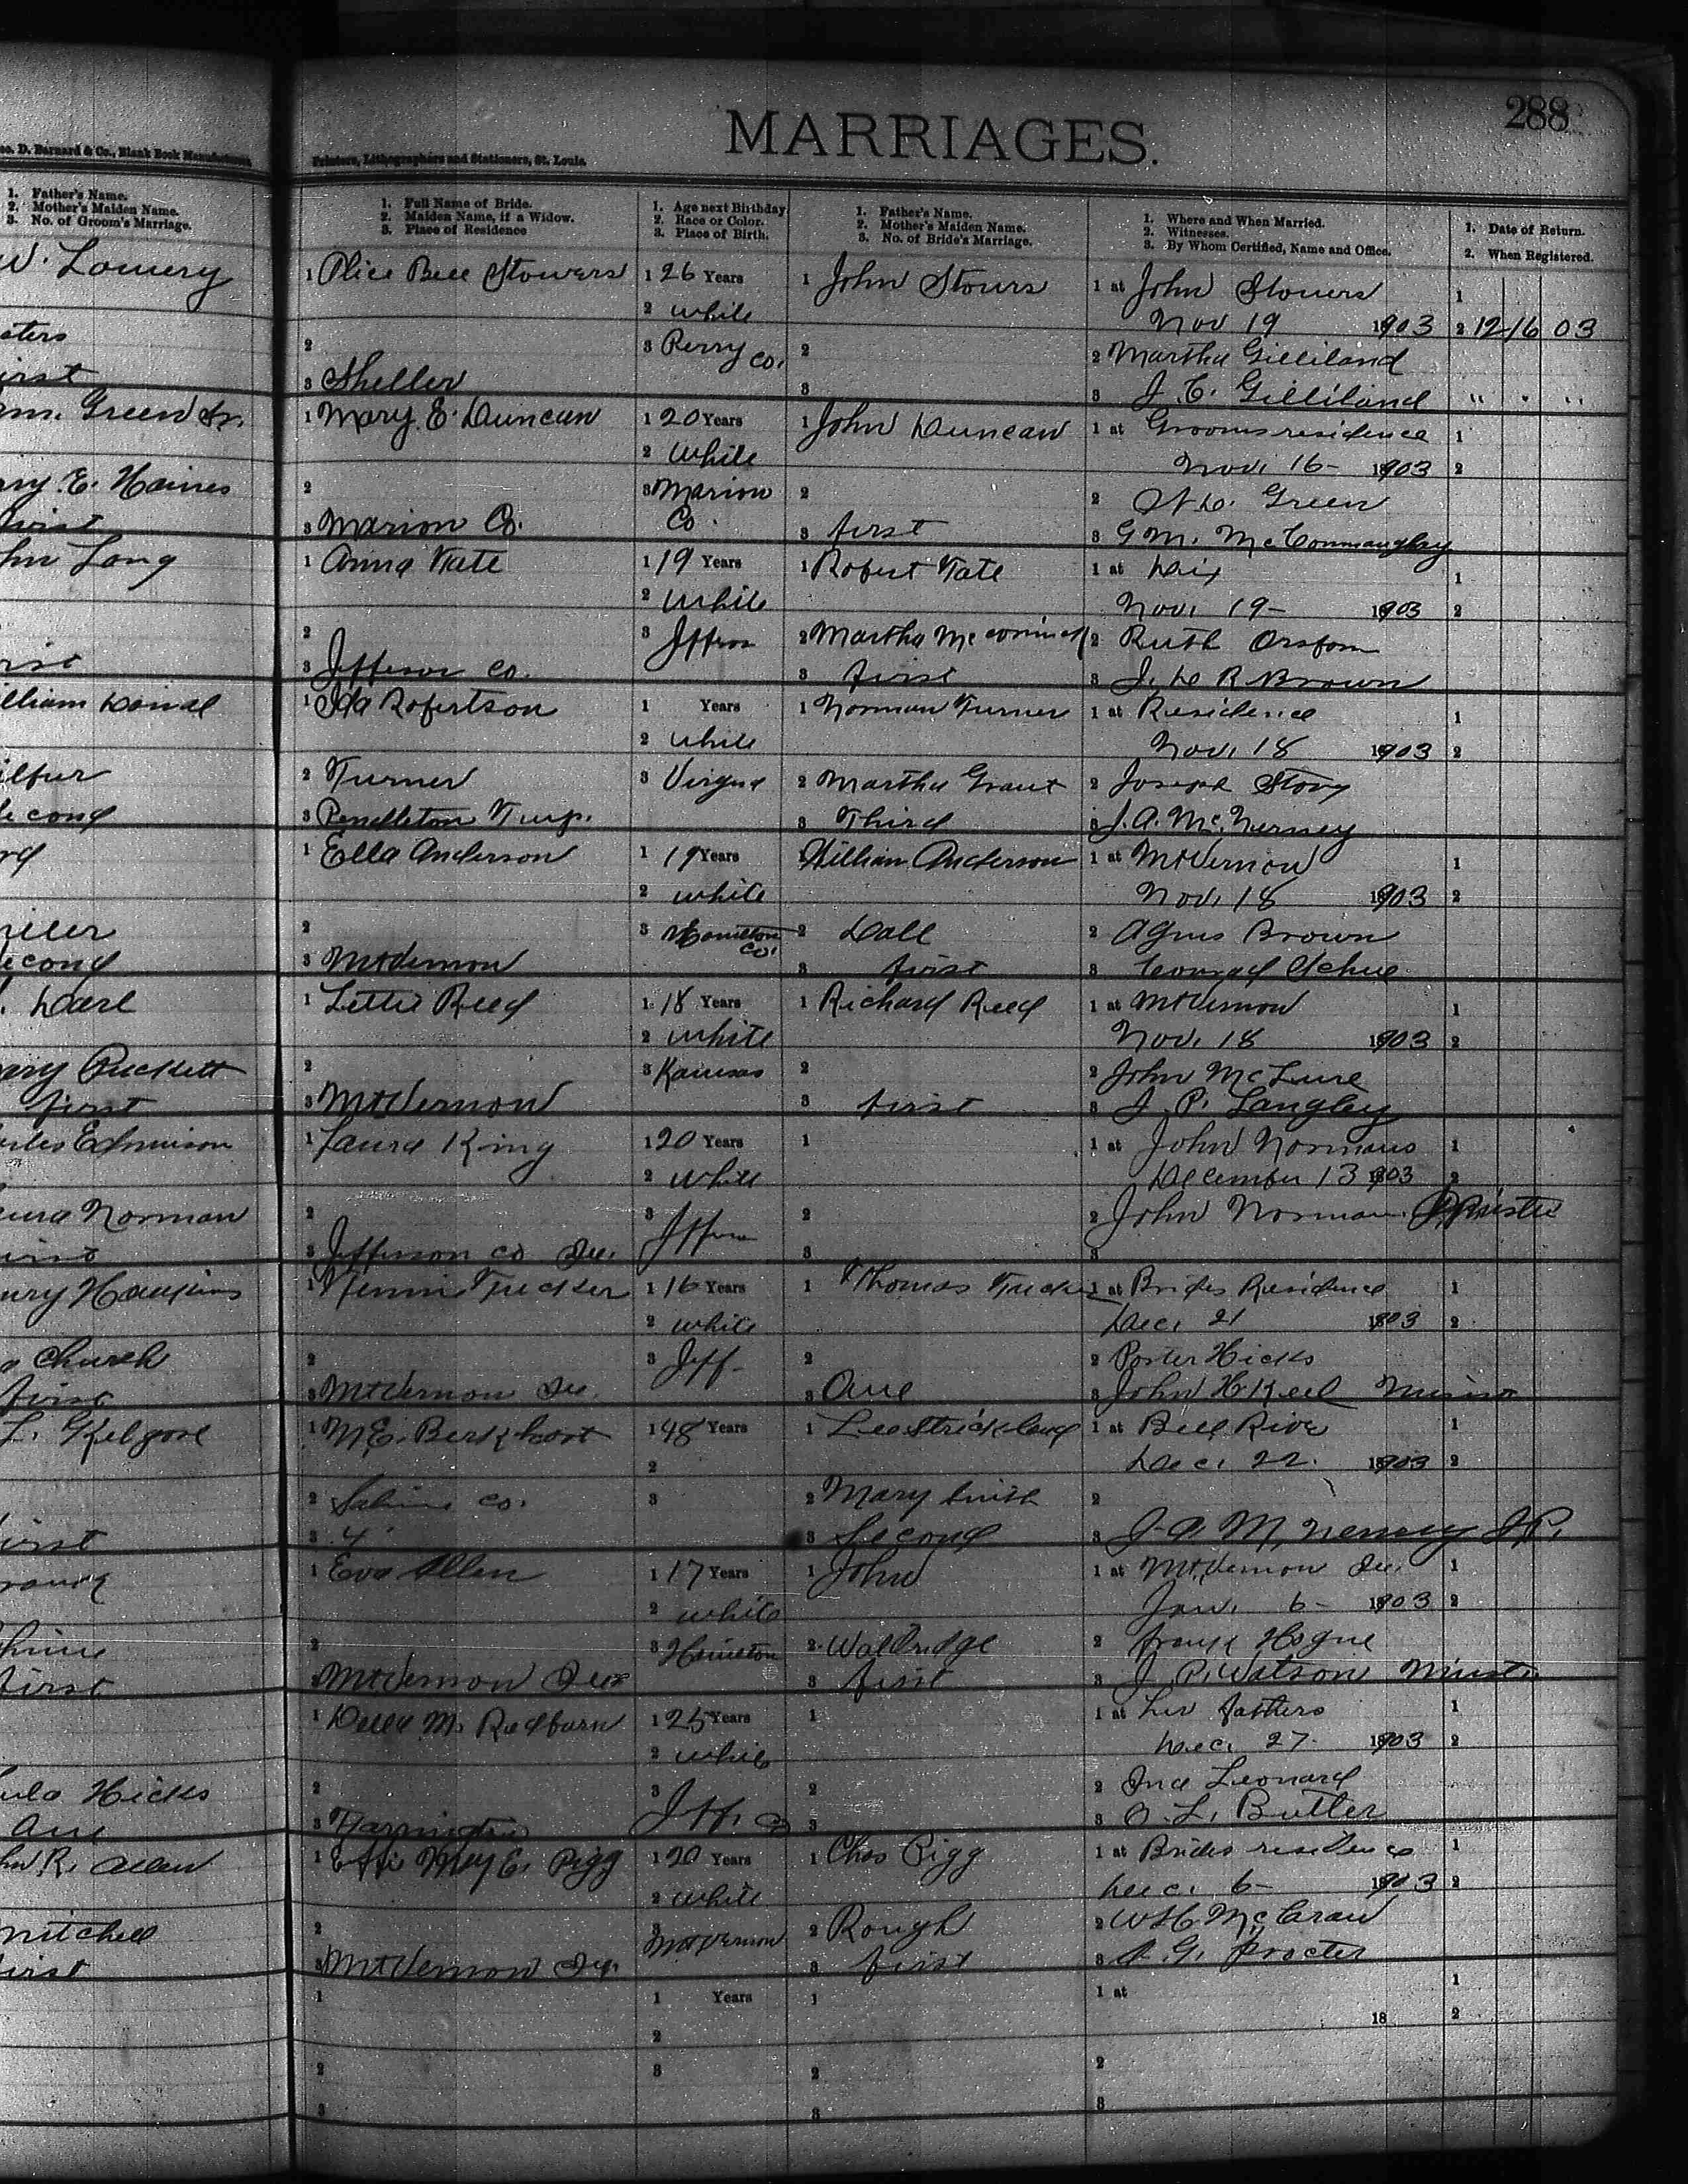 288
MARRIAGES.
eo. D. Barnard & Co., Blank Book Manufacturers,
Printers, Lithographers and Stationers, St. Louis.
1. Father's Name.
2. Mother's Maiden Name.
3. No. of Groom's Marriage.
1. Full Name of Bride.
2. Maiden Name, if a Widow.
3. Place of Residence
1. Age next Birthday
2. Race or Color.
3. Place of Birth.
1. Father's Name.
2. Mother's Maiden Name.
3. No. of Bride's Marriage.
1. Where and When Married.
2. Witnesses.
3. By Whom Certified, Name and Office.
1. Date of Return.
2. When Registered.
W. Lowery 1 Alice Bell Stowers 1 26 Years 1 John Stours 1 at John Stowers 1
2 white Nov 19 1903 2 12 16 03
eters 2 3 Perry Co. 2 2 Martha Gilliland
irst 3 Sheller 3 3 J. C. Gilliland " " "
m. Green Sr. 1 Mary E. Duncan 1 20 Years 1 John Duncan 1 at Grooms residence 1
2 White Nov. 16 - 1903 2
ry E. Haines 2 3 Marion 2 2 Green
first 3 Marion Co. Co. 3 first 3 G M. McConnaughey
hn Long 1 Anna Tate 1 19 Years 1 Robert Tate 1 at Dix 1
2 White Nov. 19 - 1903 2
2 3 Jffersn 2 Martha McCormick 2 Ruth
irst 3 Jefferson Co. 3 first 3 J. D R Brown
illiam Donal 1 Ida Robertson 1 Years 1 Norman Turner 1 at Residence 1
2 White Nov. 18 1903 2
ilbur 2 Turner 3 Virgna 2 Martha Grant 2 Joseph Story
econd 3 Pendleton Twp. 3 Third 3 J. A. McNerney
rd 1 Ella Anderson 1 19 Years 1 William Anderson 1 at Mt Vernon 1
2 white Nov. 18 1903 2
2 3 Hamilton Co. 2 Dall 2 Agnes Brown
econd 3 Mt Vernon 3 first 3 Conrad Schue
Darl 1 Lettie Reed 1 18 Years 1 Richard Reed 1 at Mt Vernon 1
2 White Nov. 18 1903 2
ary Puckett 2 3 Kansas 2 2 John McLure
first 3 Mt Vernon 3 first 3 J. P. Langley
arles Edmison 1 Laura King 1 20 Years 1 1 at John Normans 1
2 White December 13 1903 2
ura Norman 2 3 Jffersn 2 2 John Norman
irst 3 Jefferson Co Ill. 3 3
nry Hawkins 1 Tucker 1 16 Years 1 Thomas Tucker 1 at Brides Residence 1
2 white Dec. 21 1903 2
Church 2 3 Jeff- 2 2 Poster Hicks
first 3 Mt Vernon Ill. 3 One 3 John H. Keel
L. Kelgore 1 M E. Berkhart 1 48 Years 1 Leo Strickland 1 at Bell Rive 1
2 Dec. 22. 1903 2
2 Saline Co. 3 2 Mary Smith 2
irst 3 4 3 Second 3 J. A. McNerney J.P.
1 Eva Allen 1 17 Years 1 John 1 at Mt Vernon Ill. 1
2 white Jan. 6 - 1903 2
hine 2 3 Hamilton 2 Waldridge 2 Frank Hogue
first 3 Mt Vernon Ills 3 first 3 J. P. Watson Minster
1 Della M. Redburn 1 25 Years 1 1 at her fathers 1
2 white Dec. 27. 1903 2
ula Hicks 2 3 Jeff. Co 2 2 Ina Leonard
One 3 3 3 O. L. Butler
hn R. Allen 1 Effie May E. Pigg 1 20 Years 1 Chas Pigg 1 at Brides residence 1
2 White Dec. 6 - 1903 2
Mitchell 2 3 Mt Vernon 2 Rough 2 W H. McGraw
irst 3 Mt Vernon Ill. 3 first 3 G. Procter
1 1 Years 1 1 at 1
2 18 2
2 3 2 2
3 3 3